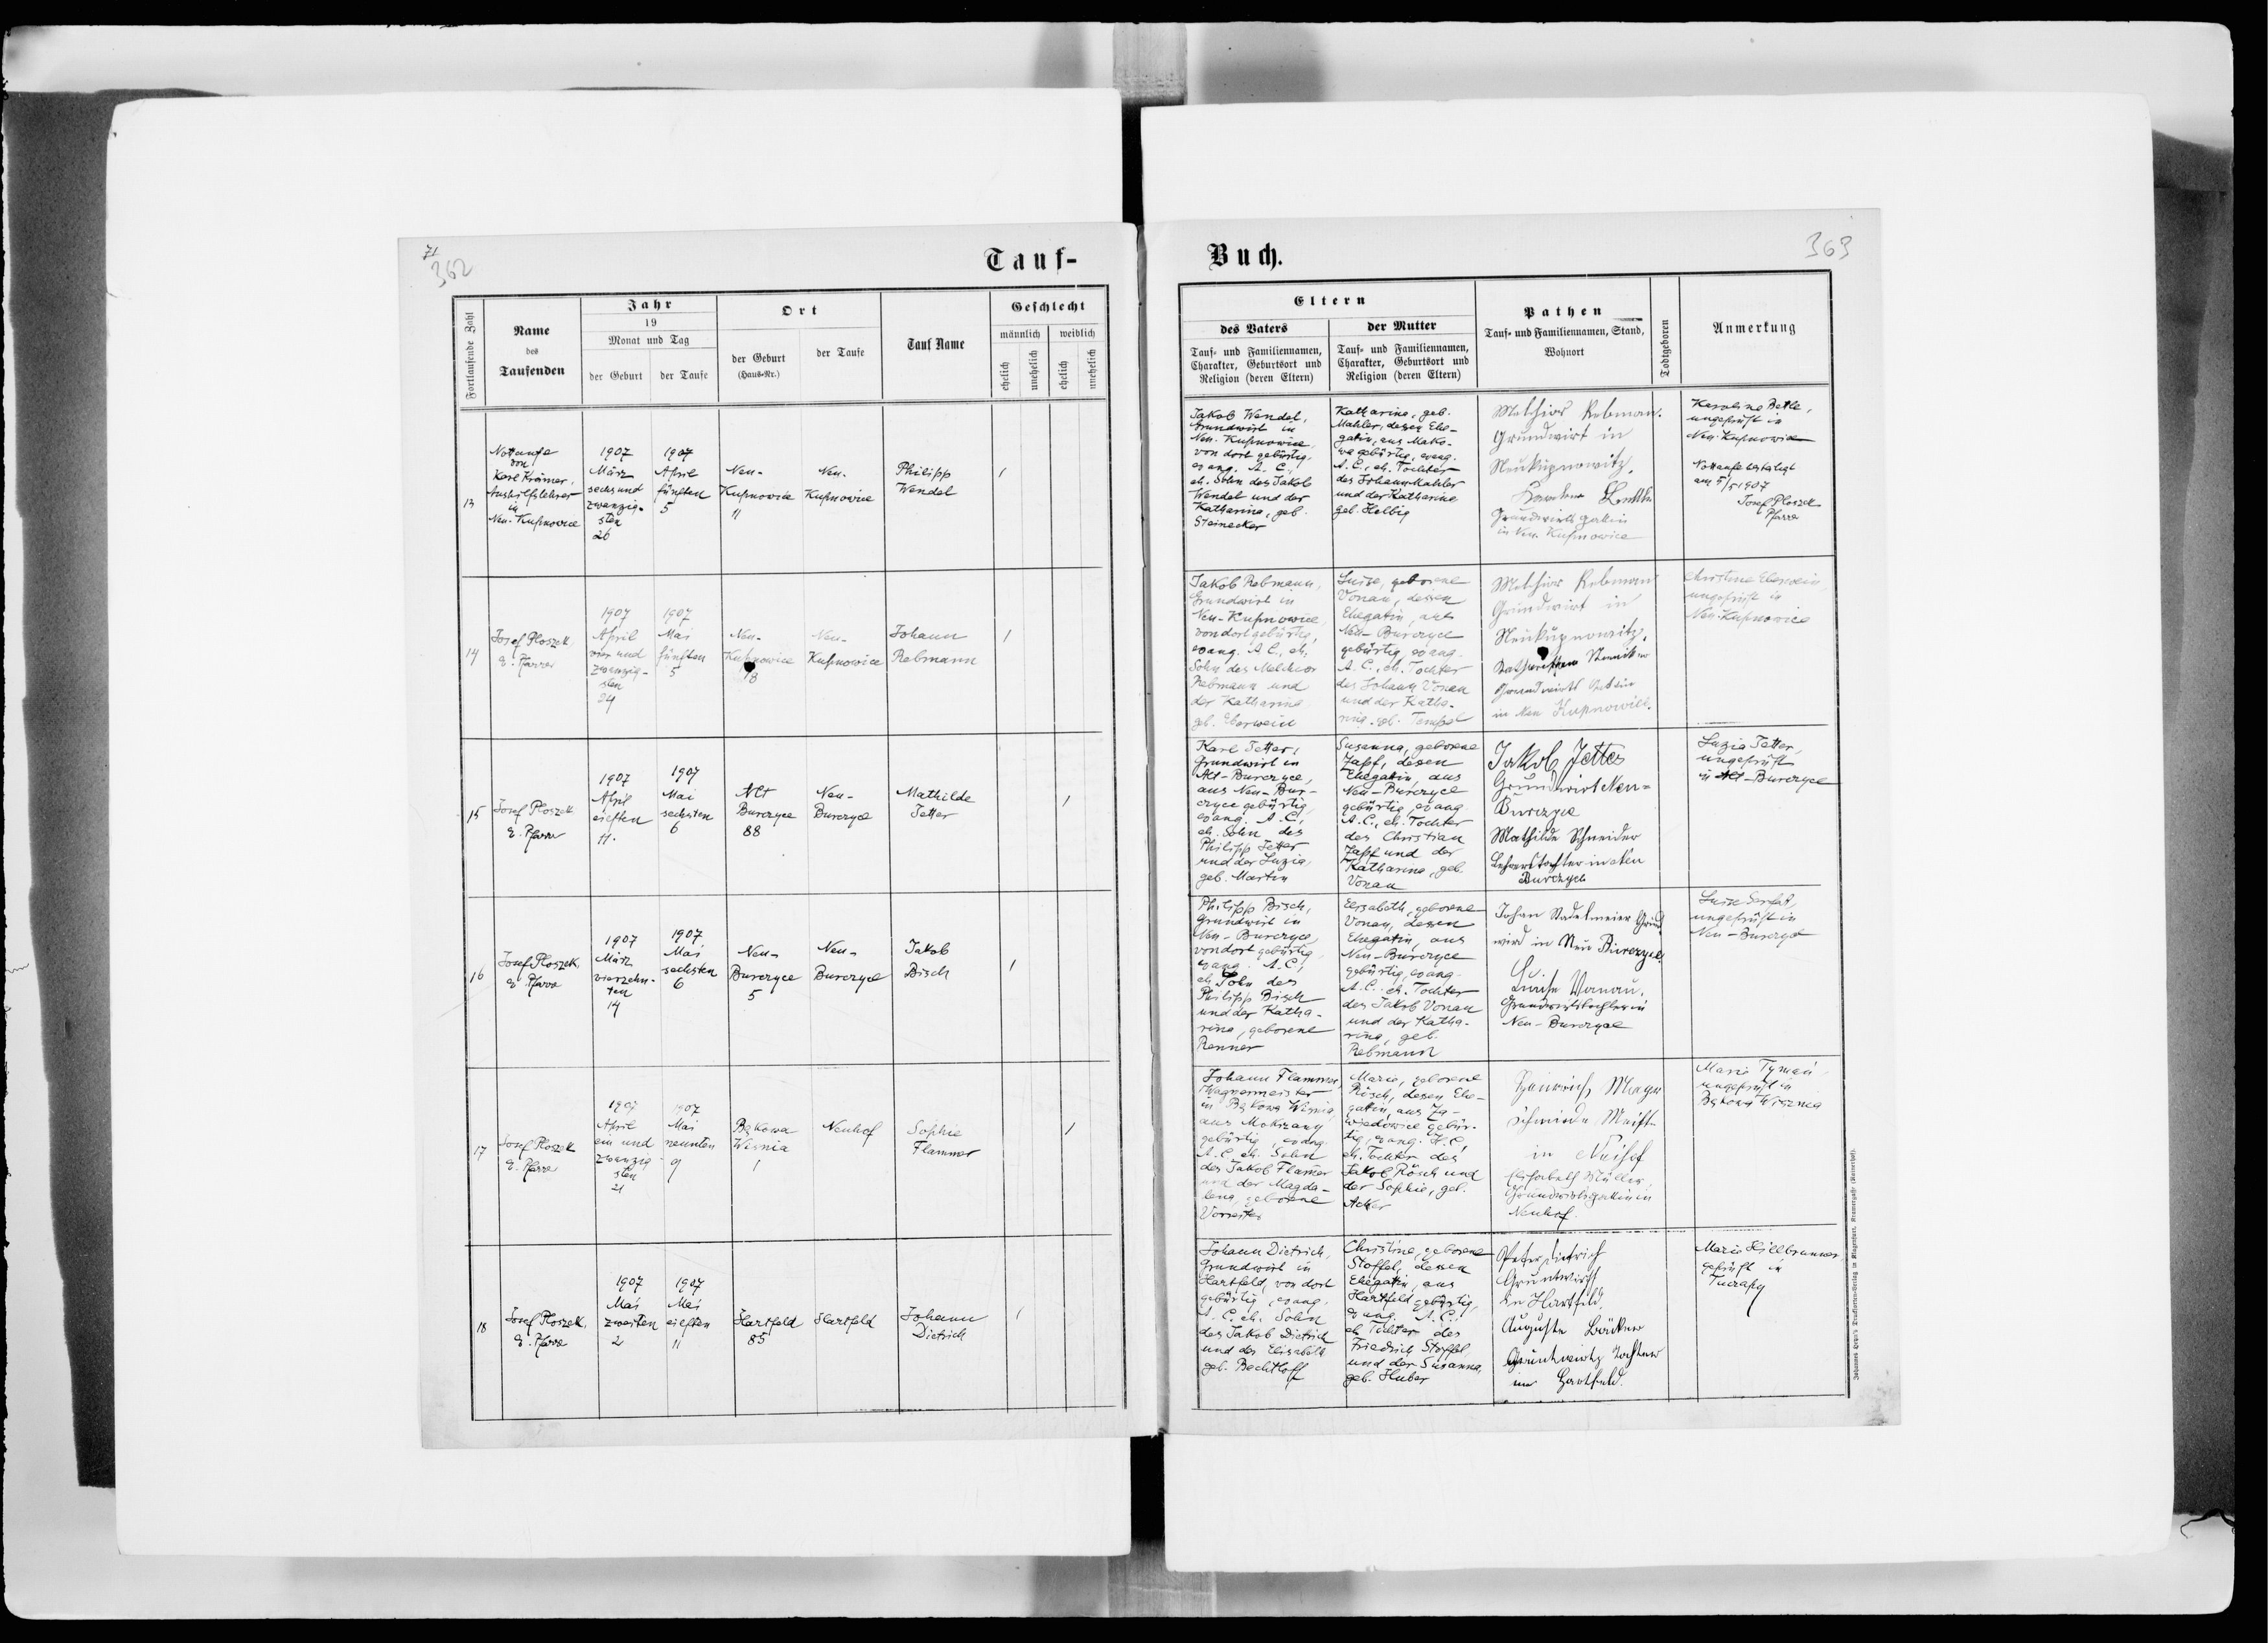 71
362
Tauf-
Fortlaufende Zahl
Name
des
Taufenden
Jahr
19
Monat und Tag
der Geburt
der Taufe
Ort
der Geburt
(Haus-Nr.)
der Taufe
Tauf Name
Geschlecht
männlich
weiblich
ehelich
unehelich
ehelich
unehelich
13
Nottaufe
von
Karl Krämer,
Aushilfslehrer
in
Neu-Kupnowice
1907
März
sechsund
zwanzig-
sten
26
1907
April
fünften
5
Neu-
Kupnowice
11
Neu-
Kupnowice
Philipp
Wendel
14
Josef Ploszek
e. Pfarrer
1907
April
vier und
zwanzig-
sten
24
1907
Mai
fünften
5
Neu-
Kupnowice
18
Neu-
Kupnowice
Johann
Rebmann
15
Josef Ploszek
e. Pfarrer
1907
April
eilften
11.
1907
Mai
sechsten
6
Alt
Burczyce
88
Neu-
Burczyce
Mathilde
Jetter
16
Josef Ploszek,
e. Pfarrer
1907
März
vierzehn-
ten
14
1907
Mai
sechsten
6
Neu-
Burczyce
5
Neu-
Burczyce
Jakob
Bisch
17
Josef Ploszek
e. Pfarrer
1907
April
ein und
zwanzig-
sten
21
1907
Mai
neunten
9
Bąkowa
Wisnia
1
Neuhof
Sophie
Flammer
18
Josef Ploszek,
e. Pfarrer
1907
Mai
zweiten
2
1907
Mai
eilften
11
Hartfeld
85
Hartfeld
Johann
Dietrich
Buch.
363
Eltern
des Vaters
Tauf- und Familiennamen,
Charakter, Geburtsort und
Religion (deren Eltern)
der Mutter
Tauf- und Familiennamen,
Charakter, Geburtsort und
Religion (deren Eltern)
Pathen
Tauf- und Familiennamen, Stand,
Wohnort
Todtgeboren
Anmerkung
Jakob Wendel,
Grundwirt in
Neu-Kupnowice,
von dort gebürtig,
evang. A. C.,
eh. Sohn des Jakob
Wendel und der
Katharina, geb.
Steinecker
Katharina, geb.
Mahler, dessen Ehe-
gatin, aus Mako-
wa gebürtig, evang.
A. C., eh. Tochter
des Johann Mahler
und der Katharina
geb. Helbig
Melchior Rebman.
Grundwirt in
Neukupnowitz.
Grundwirts gatin
in Neu. Kupnowice
Karoline Betle,
ungeprüft in
Neu-Kupnowice
Nottaufe bestätigt
am 5/5 1907
Josef Ploszek
Pfarrer
Jakob Rebmann,
Grundwirt in
Neu-Kupnowice,
von dort gebürtig,
evang. A. C., eh.
Sohn des Melchior
Rebmann und
der Katharina
geb. Eberwein
Luise, geborene
Vonau, dessen
Ehegatin, aus
Neu-Burczyce
gebürtig, evang.
A. C., eh. Tochter
des Johann Vonau
und der Katha-
rina, geb. Tempel
Melchior Rebman
Grundwirt in
Neukupnowitz.
Grundwirts Gatin
in Neu Kupnowice.
Christine Eberwein,
ungeprüft in
Neu-Kupnowice
Karl Jetter,
Grundwirt in
Alt-Burczyce,
aus Neu-Bur-
czyce gebürtig,
evang. A. C.,
eh. Sohn des
Philipp Jetter
und der Luzia,
geb. Martin
Susanna, geborene
Zapf, dessen
Ehegatin, aus
Neu-Burczyce
gebürtig, evang.
A. C., eh. Tochter
des Christian
Zapf und der
Katharina, geb.
Vonau
Jakob Jetter
Grundwirt Neu-
Burczyce
Mathilde Schneider
Lehrerstochter in Neu
Burczyce
Luzia Jetter,
ungeprüft
in Alt-Burczyce
Philipp Bisch,
Grundwirt in
Neu-Burczyce,
von dort gebürtig,
evang. A. C.,
eh. Sohn des
Philipp Bisch
und der Katha-
rina, geborene
Renner
Elisabeth, geborene
Vonau, dessen
Ehegatin, aus
Neu-Burczyce
gebürtig, evang.
A. C. eh. Tochter
des Jakob Vonau
und der Katha-
rina, geb.
Rebmann
Johan Stadelmeier Grund
wird in Neu Burczyce.
Luise Vonau.
Grundwirtstochter in
Neu-Burczyce
Luise
ungeprüft in
Neu-Burczyce
Johann Flammer,
Wagnermeister
in Bąkowa Wisnia,
aus Mokrzany
gebürtig, evang.
A. C. eh. Sohn
des Jakob Flamer
und der Magda-
lena, geborene
Marie, geborene
Rösch, dessen Ehe-
gatin, aus Za-
wiedowice gebür-
tig, evang. A. C.,
eh. Tochter des
Jakob Rösch und
der Sophie, geb.
Acker
Heinrich Mayer
Schmiede Meister
in Neihof
Elisabeth Müller,
Grundwirtsgattin in
Neuhof.
Maria Tyman,
ungeprüft in
Bąkowa Wisznia
Johann Dietrich,
Grundwirt in
Hartfeld, von dort
gebürtig, evang.
A. C. eh. Sohn
des Jakob Dietrich
und der Elisabeth
geb. Bechtloff
Christine, geborene
Stoffel, dessen
Ehegatin, aus
Hartfeld gebürtig,
evang. A. C.,
eh. Tochter des
Friedrich Stoffel
und der Susanna,
geb. Huber
Peter Dietrich
Grundwirth
in Hartfeld.
Auguste Bäcker
Tochter
in Hartfeld.
Maria Hillbrunner,
geprüft in
Tuczapy
Johannes Heyn's Drucksorten-Verlag in Klagenfurt, Kramergasse (Rainerhof).